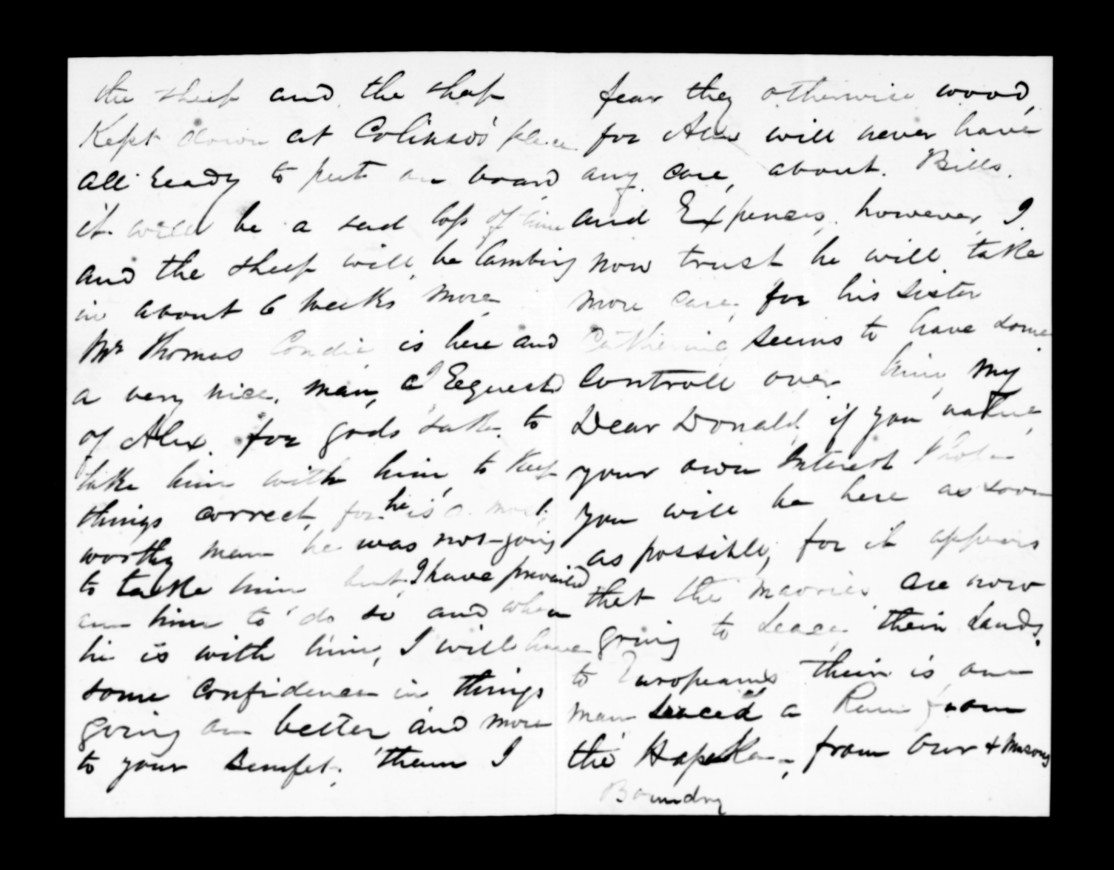 the sheep and the shep
Kept down at Colinsos place
all Ready to put on board
it will be a sad loss of time
and the sheep will be lambing
in about 6 weeks more
Mr Thomas Condie is here and
a very nice man, I Request
of Alex for gods sake to
take him with him to keep
things correct, for he is a most
worthy man he was not going
to take him but I have prevailed
on him to do so and when
he is with him, I will have
some confidence in things
going on better and more
to your Benifet, then I
fear they otherwise wood,
for Alex will never have
any care about Bills.
and Expences, however, I
now trust he will take
more care, for his sister
Catherine seems to have some
controll over him, my
Dear Donald if you value
your own Interest
you will be here as soon
as possible, for it appears
that the maories are now
going to Leace their Lands
to Europeans their is one
man Leaced a Run from
the Hapuka, from our &
Boundry